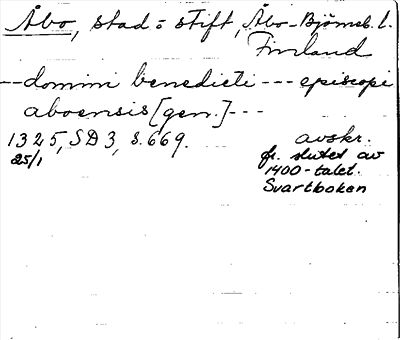 Åbo, stad = stift, Åbo-Björneb. l.
Finland
-- domini benedicti --- episcopi
aboensis [gen.] ---
1325, SD 3, s. 669.
25/1
avskr.
fr. slutet av
1400-talet.
Svartboken